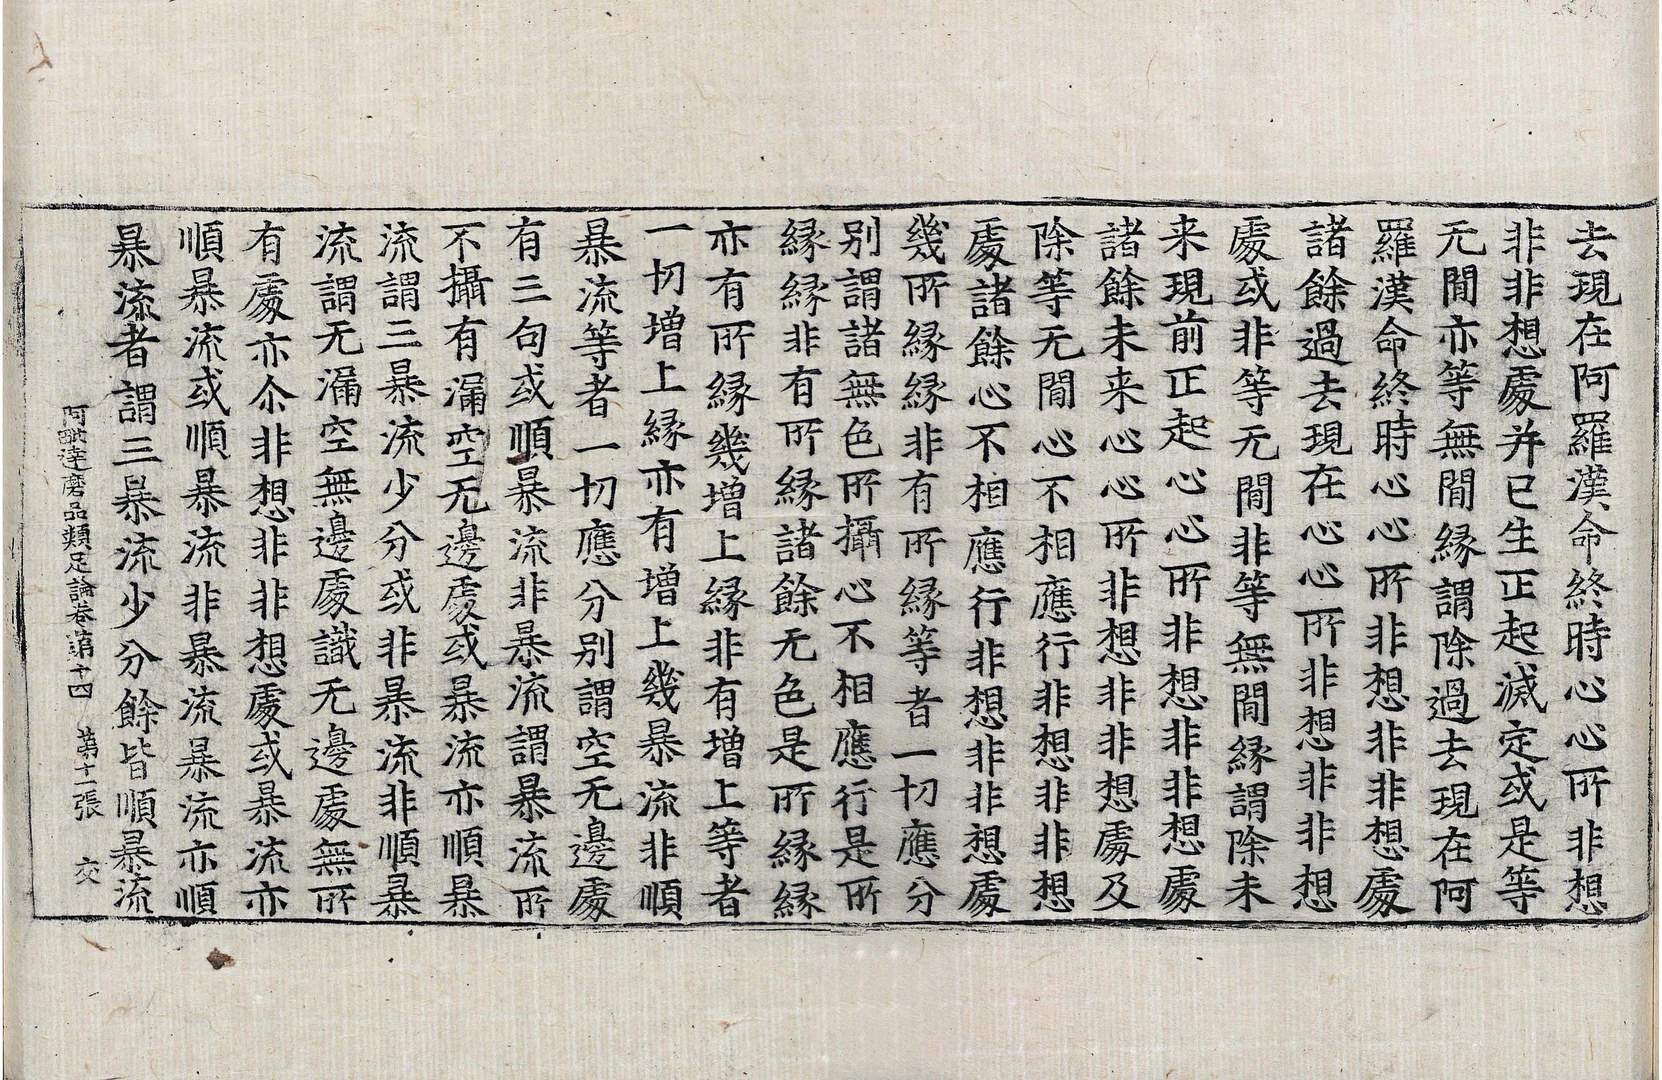 去現在阿羅漢命終時心心所非想
非非想處并已生正起滅定或是等
无間亦等無間緣謂除過去現在阿
羅漢命終時心心所非想非非想處
諸餘過去現在心心所非想非非想
處或非等无間非等無間緣謂除未
来現前正起心心所非想非非想處
諸餘未来心心所非想非非想處及
除等无間心不相應行非想非非想
處諸餘心不相應行非想非非想處
幾所緣緣非有所緣等者一切應分
別謂諸無色所攝心不相應行是所
緣緣非有所緣諸餘无色是所緣緣
亦有所緣幾增上緣非有增上等者
一切增上緣亦有增上幾暴流非順
暴流等者一切應分別謂空无邊處
有三句或順暴流非暴流謂暴流所
不攝有漏空无邊處或暴流亦順暴
流謂三暴流少分或非暴流非順暴
流謂无漏空無邊處識无邊處無所
有處亦尒非想非非想處或暴流亦
順暴流或順暴流非暴流暴流亦順
暴流者謂三暴流少分餘皆順暴流
阿毗達磨品類足論卷第十四 第十一張 交